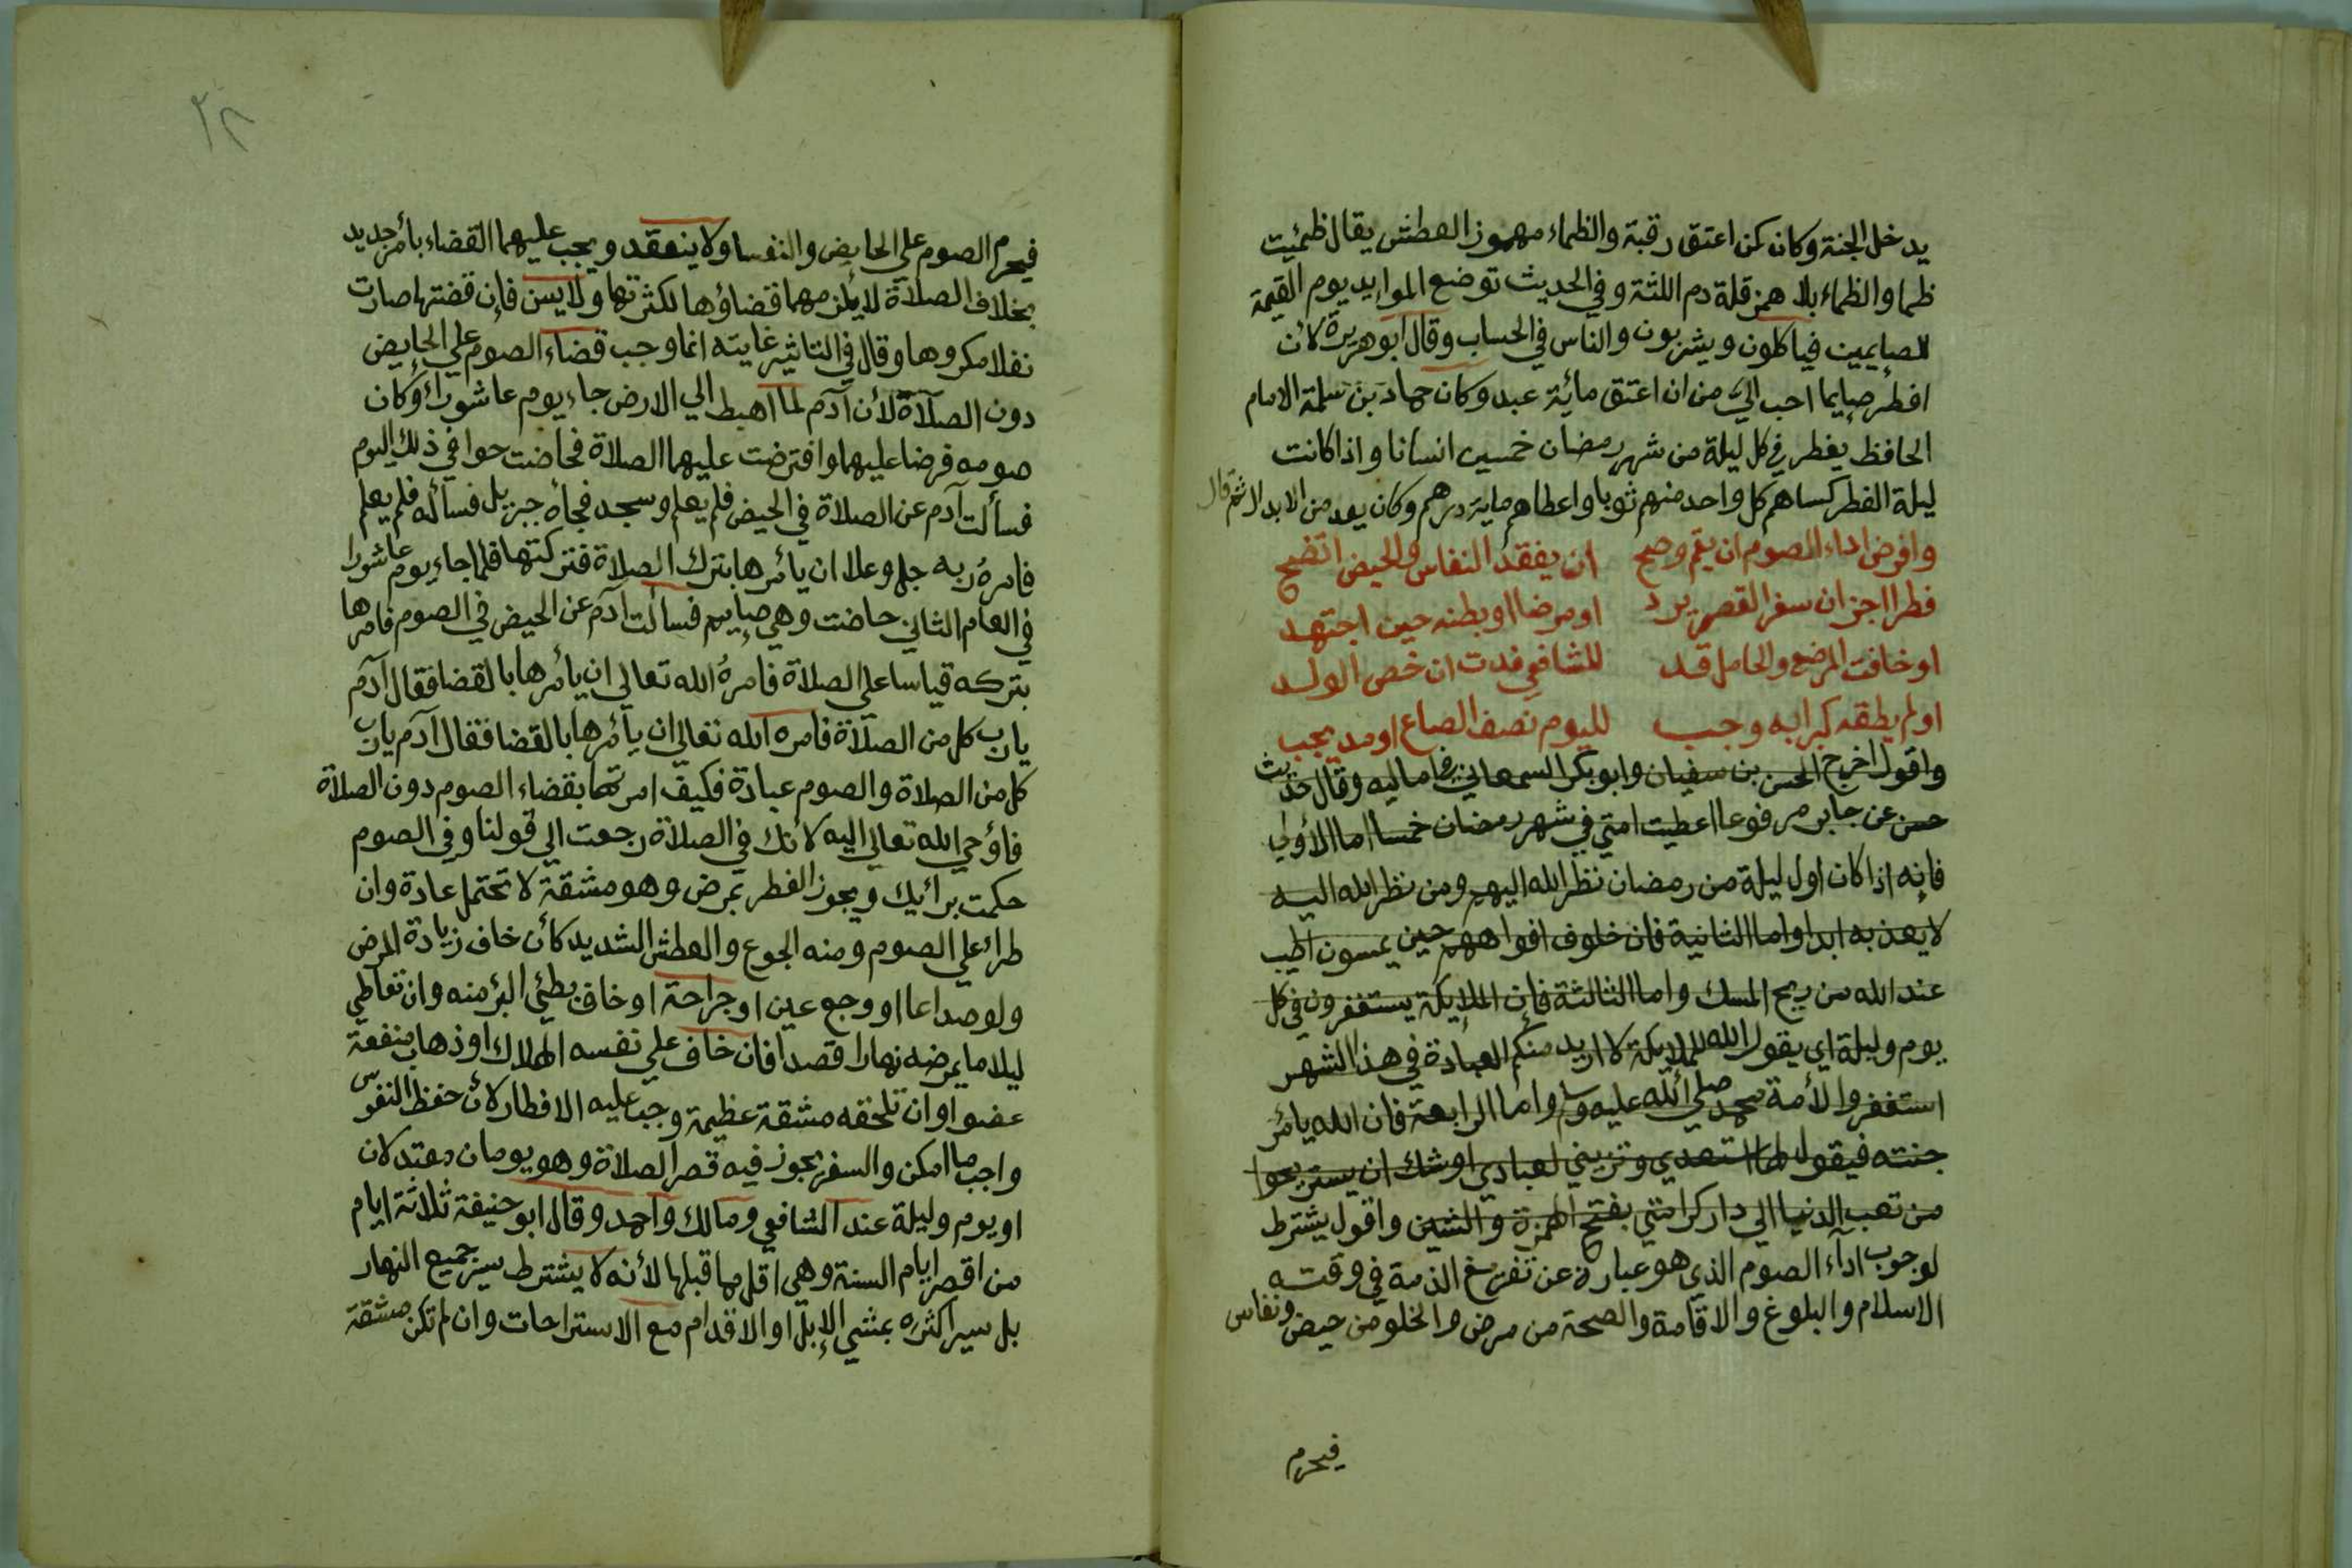 يدخل الجنة وكان كمن اعتق رقبة والظماء مهموز العطش يقال ظمئيت
ظما والظماء بلا همز قلة دم اللثة وفي الحديث توضع الموايد يوم القيمة
للصايمين فياكلون ويشربون والناس في الحساب وقال ابو هريرة لأن
افطر صايما احب الي من ان اعتق مائة عبد وكان حماد بن سلمة الامام
الحافظ يفطر في كل ليلة من شهر رمضان خمسين انسانا واذا كانت
ليلة الفطر كساهم كل واحد منهم ثوبا واعطاهم ماية درهم وكان يعد من الابدال ثم قال
وافرض اداء الصوم ان يقم وصح ان يفقد النفاس والحيض اتضح
فطرا اجز ان سفر القصر يرد او مرضا او بطنه حين اجتهد
او خافت المرضع والحامل قد للشافعي فدت ان خص الولد
او لم يطقه كبرا به وجب لليوم نصف الصاع او مد يجب
واقول اخرج الحسن بن سفيان وابو بكر السمعاني في اماليه وقال حديث
حسن عن جابر مرفوعا اعطيت امتي في شهر رمضان خمسا اما الأولي
فإنه اذا كان اول ليلة من رمضان نظر الله اليهم ومن نظر الله اليه
لا يعذبه ابدا واما الثانية فان خلوف افواههم حين يمسون اطيب
عند الله من ريح المسك واما الثالثة فإن الملايكة يستغفرون في كل
يوم وليلة اي يقول الله للملايكة لا اريد منكم العبادة في هذا الشهر
استغفروا لأمة محمد صلي الله عليه وسلم واما الرابعة فان الله يأمر
جنته فيقول لها استعدي وتزيني لعبادي اوشك ان يستريحوا
من تعب الدنيا الي دار كرامتي بفتح الهمزة والشين واقول يشترط
لوجوب اداء الصوم الذي هو عبارة عن تفريغ الذمة في وقته
الاسلام والبلوغ والاقامة والصحة من مرض والخلو من حيض ونفاس
فيحرم
٢٢
فيحرم الصوم علي الحايض والنفسا ولا ينعقد ويجب عليهما القضاء بأمر جديد
بخلاف الصلاة لا يلزمهما قضاؤها لكثرتها ولا يسن فإن قضتها صارت
نفلا مكروها وقال في التاثير غايته انما وجب قضاء الصوم علي الحايض
دون الصلاة لأن آدم لما اهبط الي الارض جاء يوم عاشوراء وكان
صومه فرضا عليهما وافترضت عليهما الصلاة فحاضت حوا في ذلك اليوم
فسألت آدم عن الصلاة في الحيض فلم يعلم وسجد فجأه جبريل فسأله فلم يعلم
فامره ربه جل وعلا ان يأمرها بترك الصلاة فتركتها فلما جاء يوم عاشورا
في العام الثاني حاضت وهي صايم فسألت آدم عن الحيض في الصوم فامرها
بتركه قياسا علي الصلاة فامره الله تعالي ان يأمرها بالقضا فقال آدم
يارب كل من الصلاة فامره الله تعالي ان يأمرها بالقضا فقال آدم يارب
كل من الصلاة والصوم عبادة فكيف امرتها بقضاء الصوم دون الصلاة
فأوحي الله تعالي اليه لأنك في الصلاة رجعت الي قولنا وفي الصوم
حكمت برأيك ويجوز الفطر بمرض وهو مشقة لا تحتمل عادة وان
طرا علي الصوم ومنه الجوع والعطش الشديد كأن خاف زيادة المرض
ولو صداعا او وجع عين او جراحة او خاف بطئي البرء منه وان تعاطي
ليلا ما يمرضه نهارا قصدا فان خاف علي نفسه الهلاك او ذهاب منفعة
عضو او ان تلحقه مشقة عظيمة وجب عليه الافطار لأن حفظ النفوس
واجب ما امكن والسفر يجوز فيه قصر الصلاة وهو يومان معتدلان
او يوم وليلة عند الشافعي ومالك واحمد وقال ابو حنيفة ثلاثة ايام
من اقصر ايام السنة وهي اقل مما قبلها لأنه لا يشترط سير جميع النهار
بل سير اكثره بمشي الإبل او الاقدام مع الاستراحات وان لم تكن مشقة